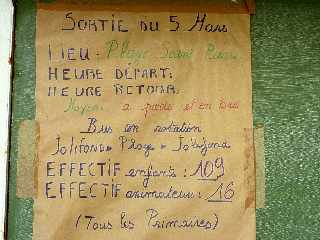 SORTIE DU 5 Mars
LIEU : Plage Saint Pierre
HEURE DÉPART:
HEURE RETOUR:
Moyen : a pieds et en bus
Bus en rotation
Plage
EFFECTIF enfants : 109
EFFECTIF animateur : 16
(Tous les Primaires)